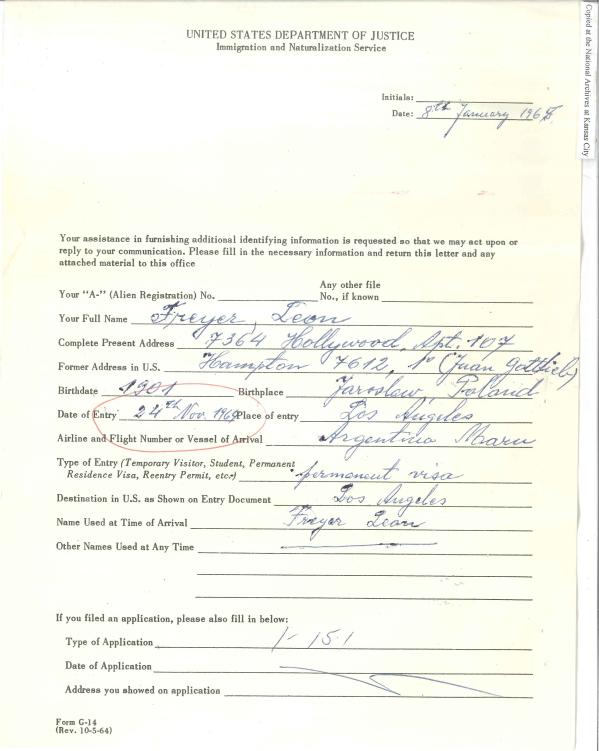 UNITED STATES DEPARTMENT OF JUSTICE
Immigration and Naturalization Service
Copied at the National Archives at Kansas City
Initials:
Date: 8th January 1968
Your assistance in furnishing additional identifying information is requested so that we may act upon or
reply to your communication. Please fill in the necessary information and return this letter and any
attached material to this office
Your "A-" (Alien Registration) No. Any other file No., if known
Your Full Name Freyer, Leon
Complete Present Address 7364 Hollywood, Apt. 107
Former Address in U.S. Hampton 7612, (Juan Gottfieb)
Birthdate 1901 Birthplace Jaroslaw, Poland
Date of Entry 24th Nov. Place of entry Los Angeles
Airline and Flight Number or Vessel of Arrival Argentina Maru
Type of Entry (Temporary Visitor, Student, Permanent
Residence Visa, Reentry Permit, etc.) permanent visa
Destination in U.S. as Shown on Entry Document Los Angeles
Name Used at Time of Arrival Freyer Leon
Other Names Used at Any Time
If you filed an application, please also fill in below:
Type of Application I-151
Date of Application
Address you showed on application
Form G-14
(Rev. 10-5-64)